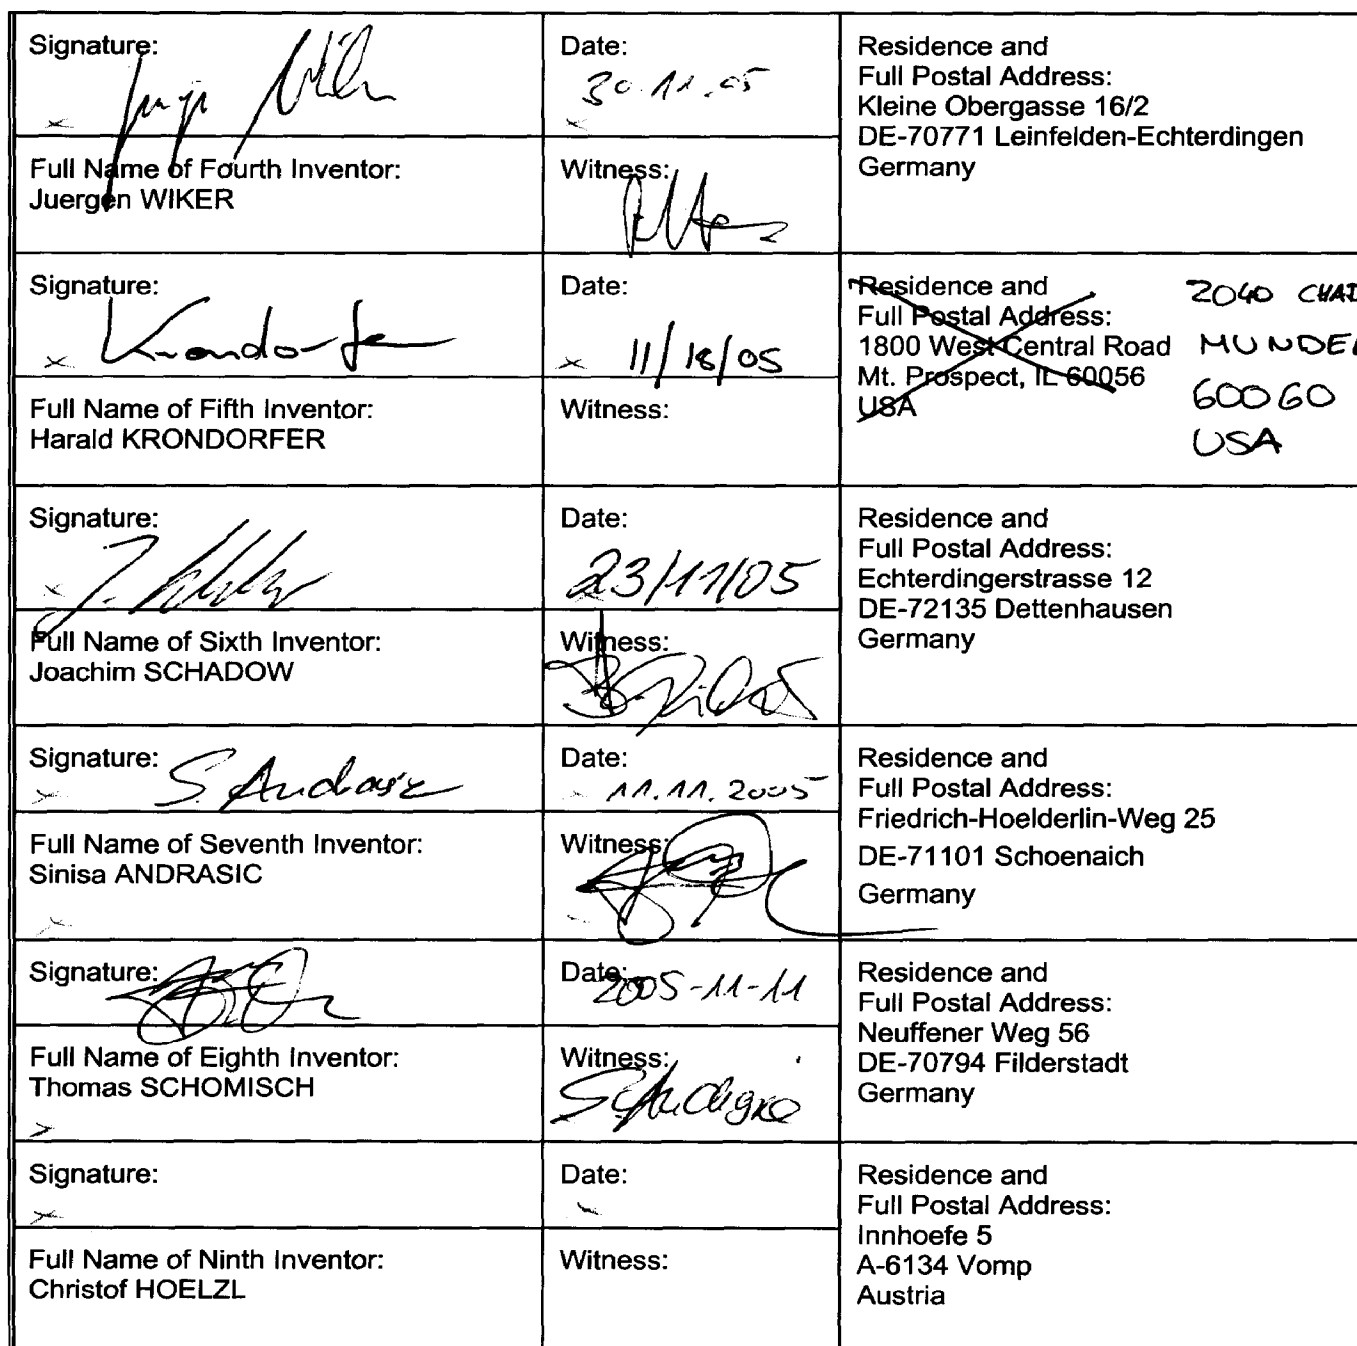 Signature:
Date:
30.11.05
Residence and
Full Postal Address:
Kleine Obergasse 16/2
DE-70771 Leinfelden-Echterdingen
Germany
Full Name of Fourth Inventor:
Juergen WIKER
Witness:
Signature:
Krondorfer
Date:
11/18/05
Residence and
Full Postal Address:
1800 West Central Road
Mt. Prospect, IL 60056
USA
2040
60060
USA
Full Name of Fifth Inventor:
Harald KRONDORFER
Witness:
Signature:
Date:
23/11/05
Residence and
Full Postal Address:
Echterdingerstrasse 12
DE-72135 Dettenhausen
Germany
Full Name of Sixth Inventor:
Joachim SCHADOW
Witness:
Signature:
S. Andrasic
Date:
11.11.2005
Residence and
Full Postal Address:
Friedrich-Hoelderlin-Weg 25
DE-71101 Schoenaich
Germany
Full Name of Seventh Inventor:
Sinisa ANDRASIC
Witness:
Signature:
Date:
2005-11-11
Residence and
Full Postal Address:
Neuffener Weg 56
DE-70794 Filderstadt
Germany
Full Name of Eighth Inventor:
Thomas SCHOMISCH
Witness:
S. Andrasic
Signature:
Date:
Residence and
Full Postal Address:
Innhoefe 5
A-6134 Vomp
Austria
Full Name of Ninth Inventor:
Christof HOELZL
Witness: